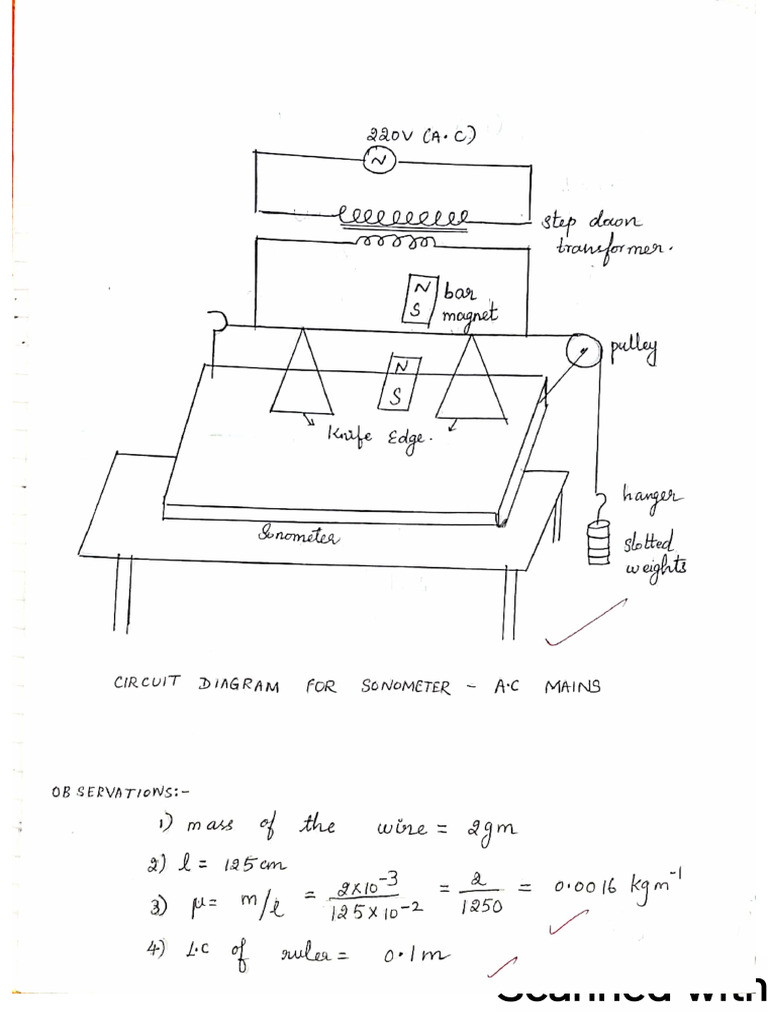 220V (A.C)
N
step down
transformer.
N
S
bar
magnet
pulley
N
S
Knife Edge.
hanger
Sonometer
slotted
weights
CIRCUIT DIAGRAM FOR SONOMETER - A.C MAINS
OBSERVATIONS:-
1) mass of the wire = 2gm
2) l = 125cm
3) μ = m/l = 2×10⁻³/125×10⁻² = 2/1250 = 0.0016 kgm⁻¹
4) L.C of ruler = 0.1m
Scanned with